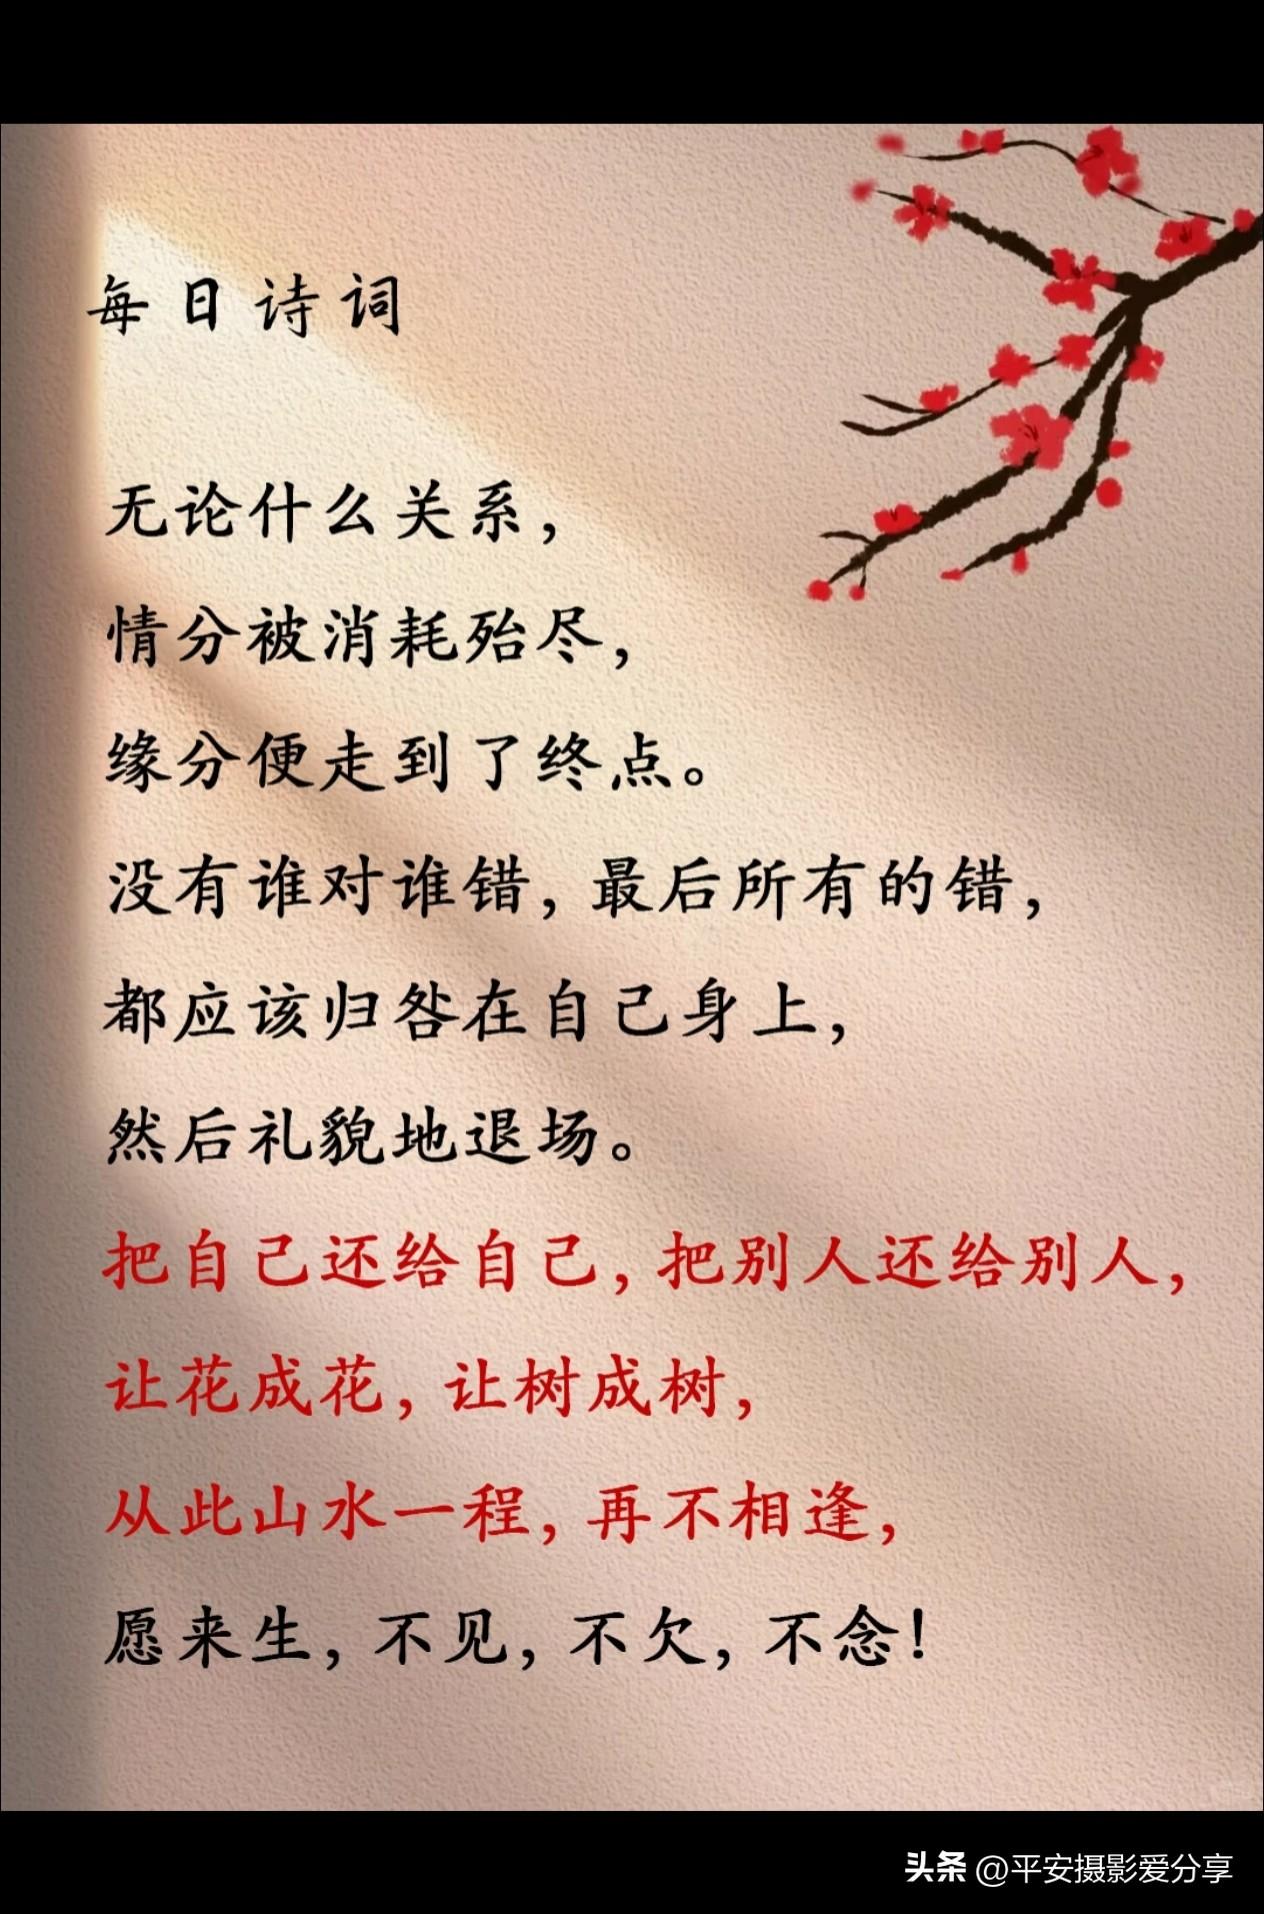 每日诗词
无论什么关系，
情分被消耗殆尽，
缘分便走到了终点。
没有谁对谁错，最后所有的错，
都应该归咎在自己身上，
然后礼貌地退场。
把自己还给自己，把别人还给别人，
让花成花，让树成树，
从此山水一程，再不相逢，
愿来生，不见，不欠，不念！
头条 @平安摄影爱分享